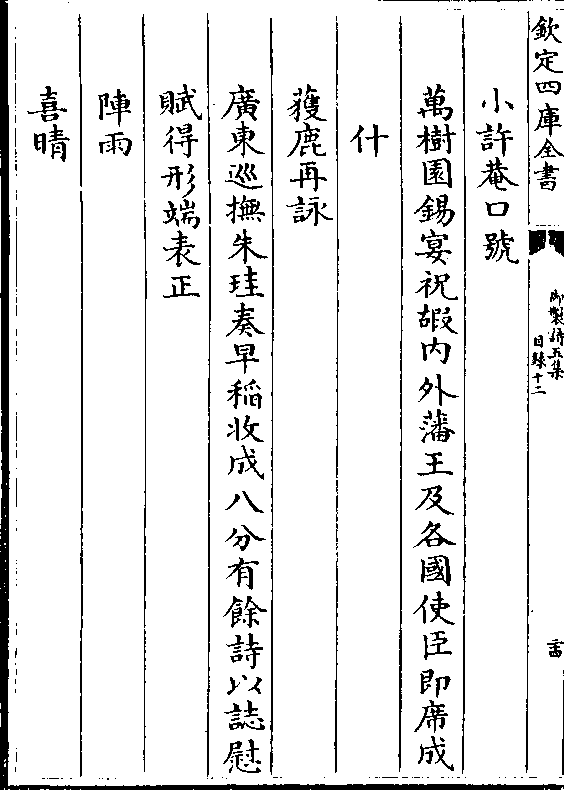 欽定四庫全書
御製詩五集
目録十二
二十四
小許菴口號
萬樹園錫宴祝嘏内外藩王及各國使臣即席成
什
獲鹿再詠
廣東巡撫朱珪奏早稻收成八分有餘詩以誌慰
賦得形端表正
陣雨
喜晴